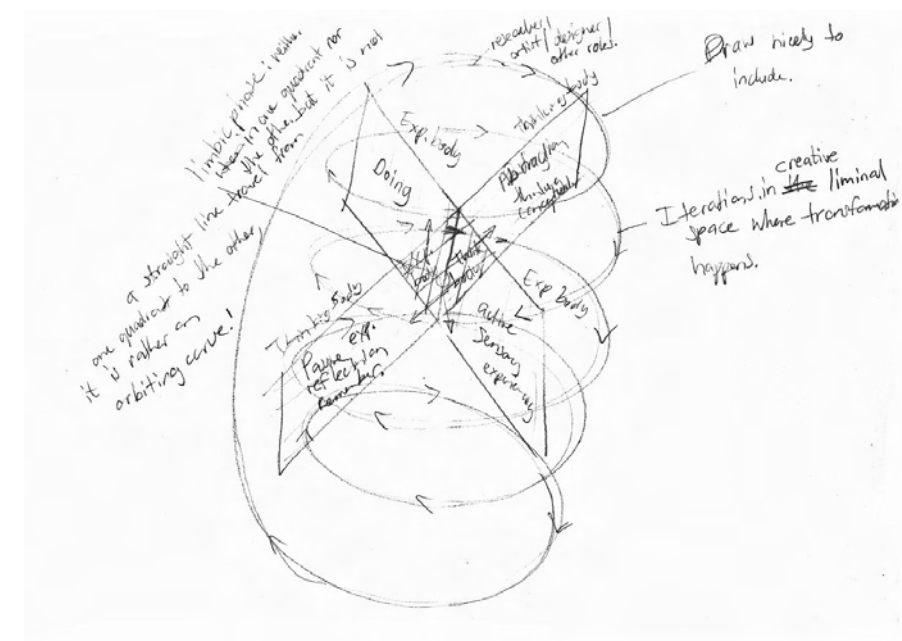 limbic phase: neither
in one quadrant nor
the other, but it is not
a straight line travel from
one quadrant to the other,
it is rather an
orbiting curve!
researcher/
artist/ designer/
other roles.
Draw nicely to
include.
Iterations in creative liminal
space where transformation
happens.
Exp. body
Doing
Thinking body
Abstraction
thinking
conceptual
Exp.
body
Think
body
Thinking Body
exp.
Passive
reflection
remember.
Exp body
active
Sensory
experiencing